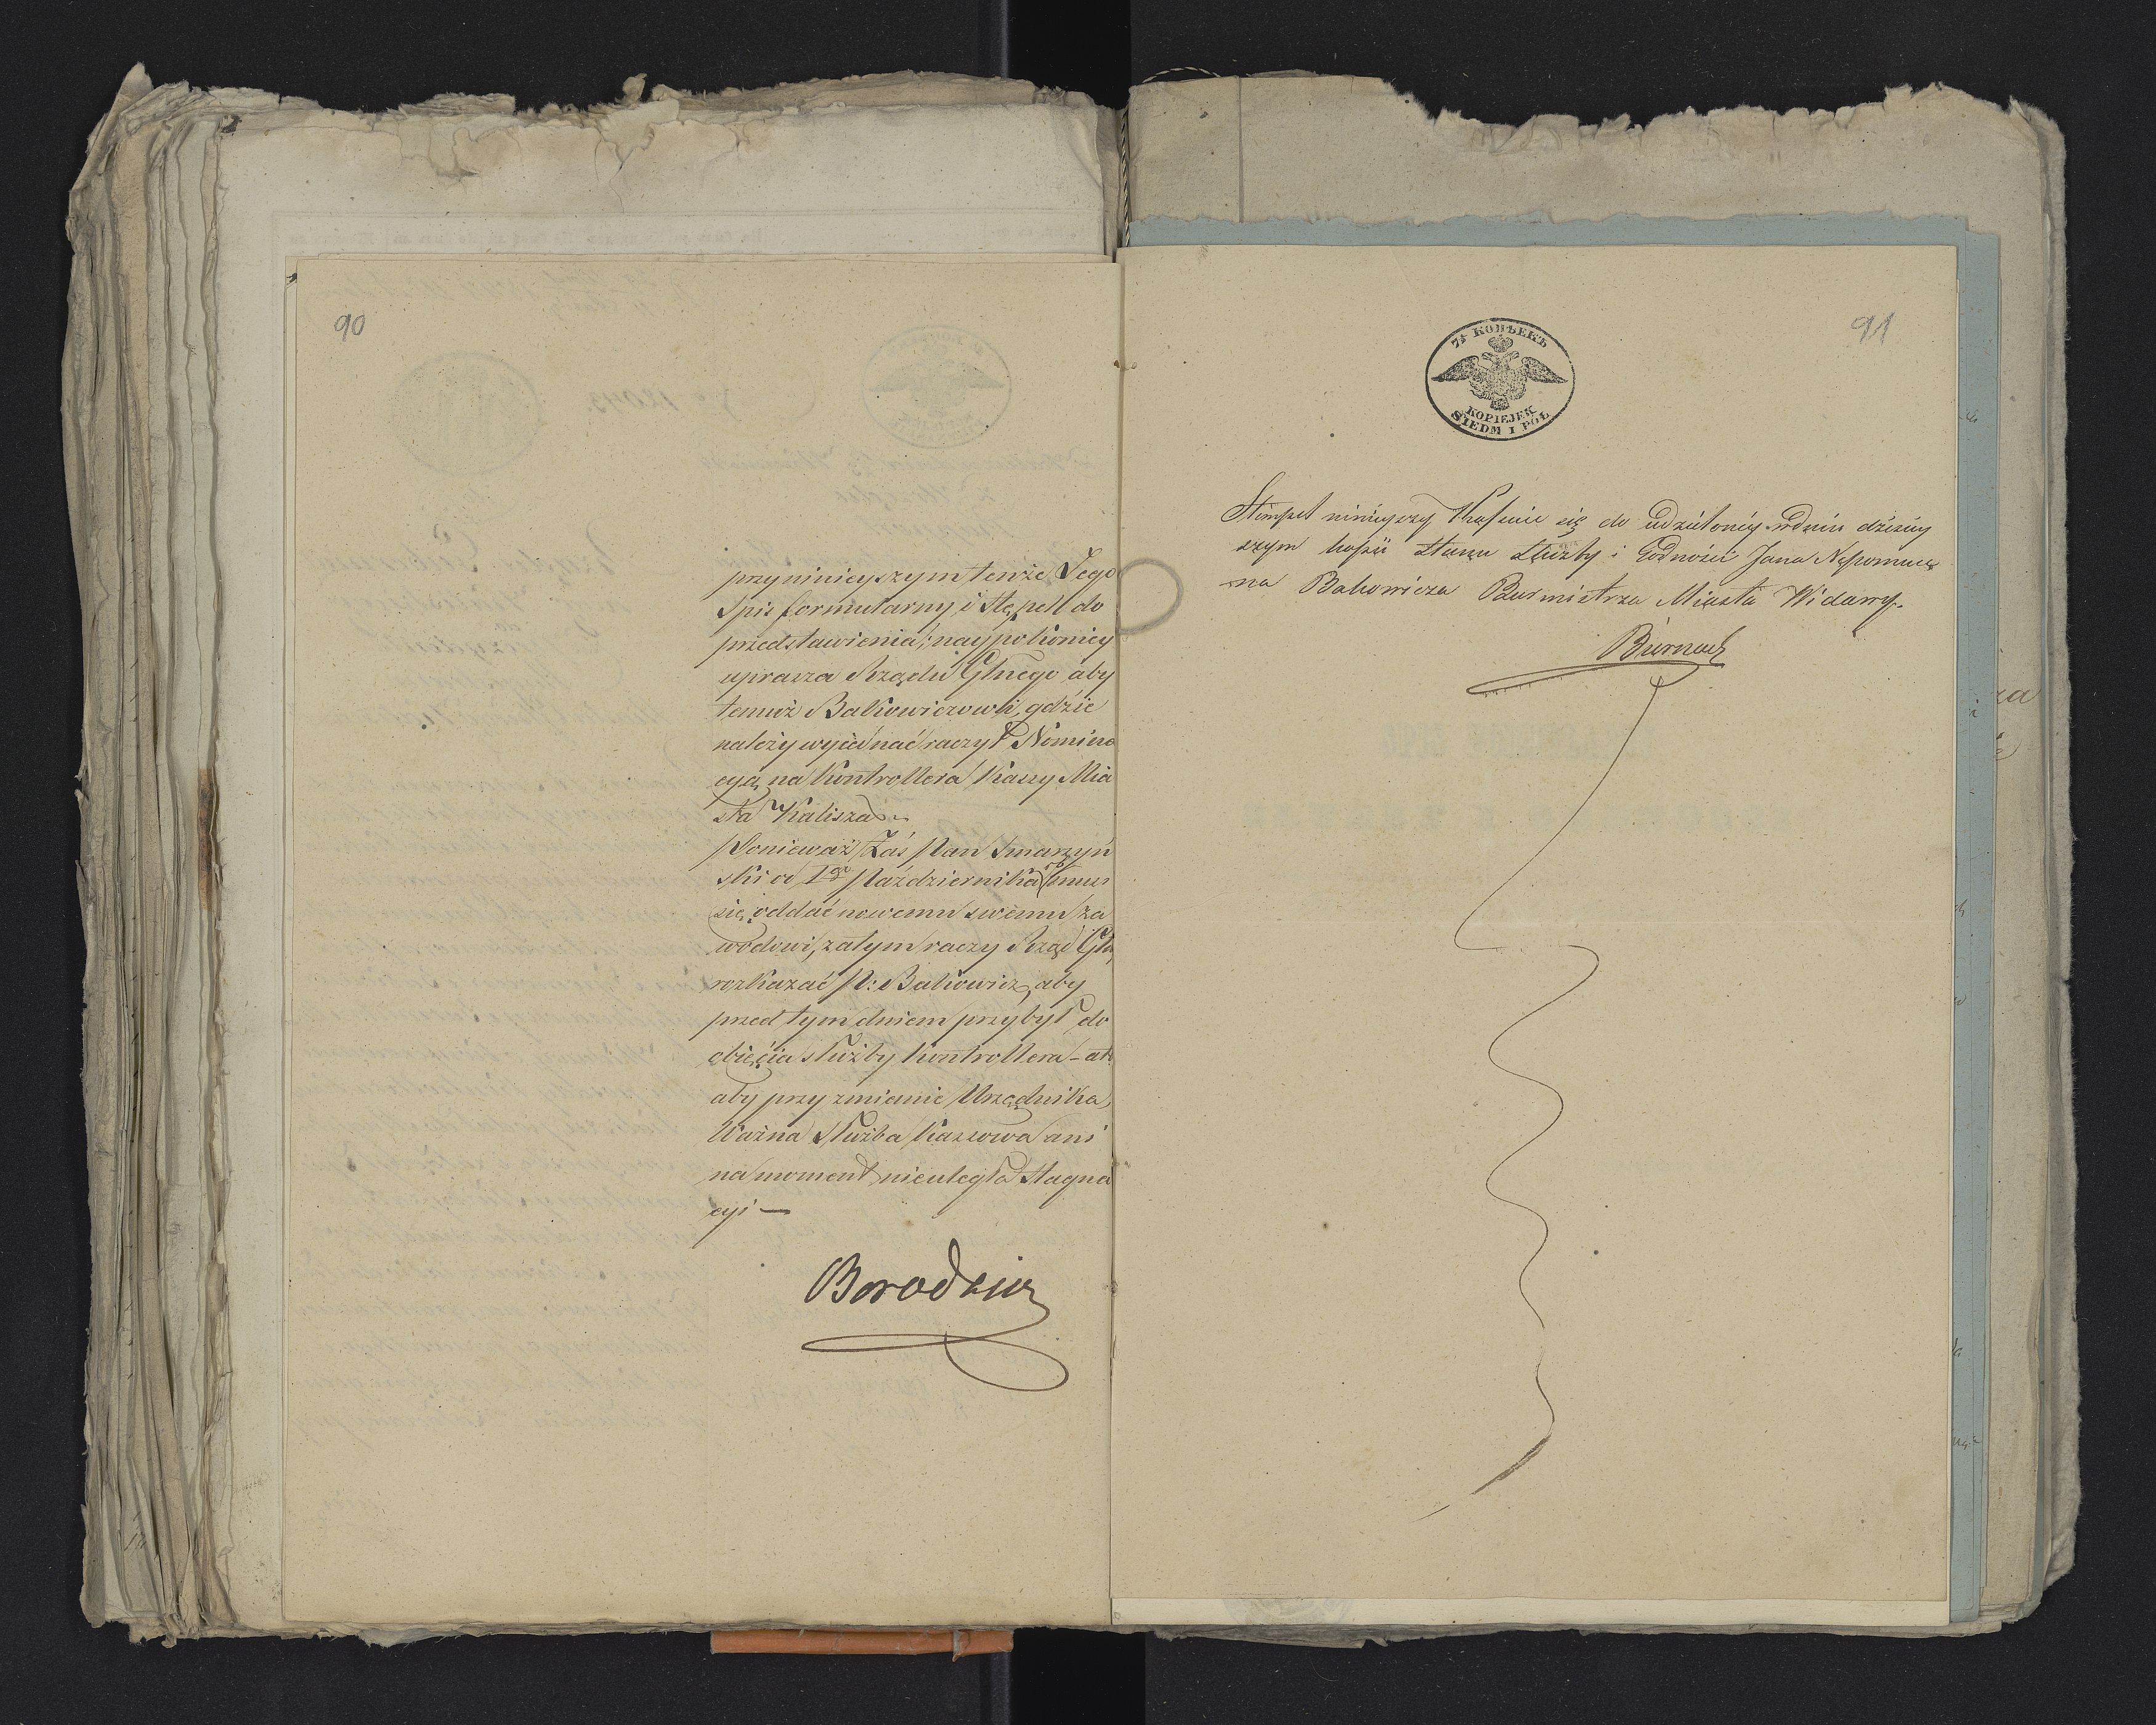 90
przyninieyszym tenże Jego
Spis formularny i stępel do
przedstawienia; naypokorniey
uprasza Rządu Glnego aby
temuż Bakowiczowi, gdzie
należy wyiednać raczył Nomina
cyą na Kontrollera Kassy Mia
sta Kalisza
Ponieważ zaś Pan Smarzyń
ski od 1go Października musi
się oddać nowemu swemu za
wodowi, zatym raczy Rząd Gln
rozkazać P: Bakowicz, aby
przed tym dniem przybył do
obięcia służby Kontrollera –
aby przy zmianie Urzędnika,
Ważna Służba Kassowa ani
na moment nieuległa Stagna
cyi —
Borodzicz
91
7½ КОПѢЕКЪ
KOPIEJEK
SIEDM I PÓŁ
Stempel ninieyszy kasuie się do udzieloney w dniu dzisiey
szym kopii Stanu Służby i Godności Jana Nepomuce
na Bakowicza Burmistrza Miasta Widawy.